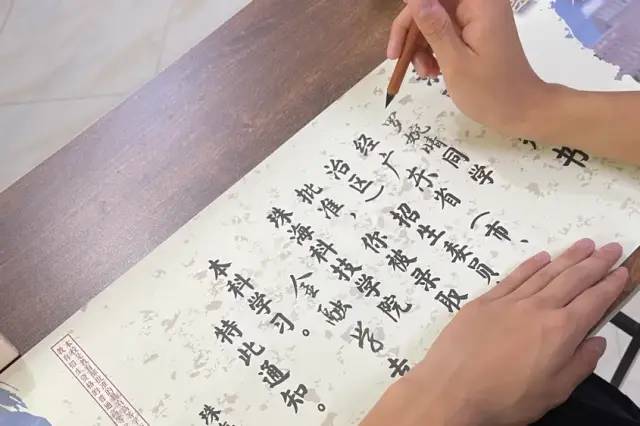 书
罗婉晴同学
经广东省(市、
治区)招生委员
批准,你被录取
珠海科技学院
金融学专
本科学习。
特此通知。
珠